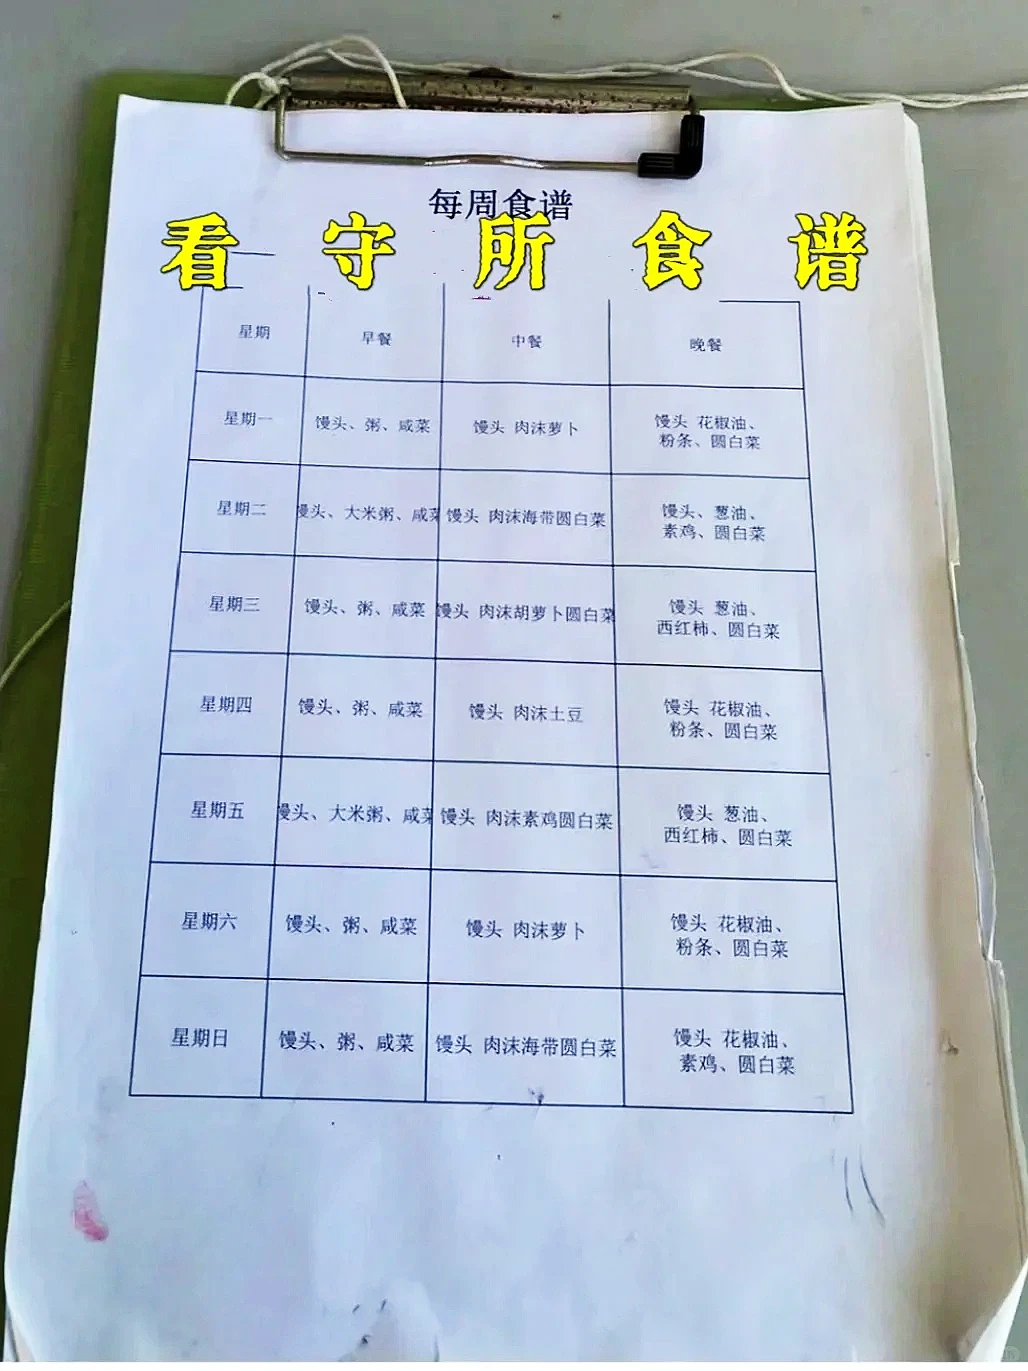 每周食谱
看守所食谱
星期 早餐 中餐 晚餐
星期一 馒头、粥、咸菜 馒头 肉沫萝卜 馒头 花椒油、
粉条、圆白菜
星期二 馒头、大米粥、咸菜 馒头 肉沫海带圆白菜 馒头、葱油、
素鸡、圆白菜
星期三 馒头、粥、咸菜 馒头 肉沫胡萝卜圆白菜 馒头 葱油、
西红柿、圆白菜
星期四 馒头、粥、咸菜 馒头 肉沫土豆 馒头 花椒油、
粉条、圆白菜
星期五 馒头、大米粥、咸菜 馒头 肉沫素鸡圆白菜 馒头 葱油、
西红柿、圆白菜
星期六 馒头、粥、咸菜 馒头 肉沫萝卜 馒头 花椒油、
粉条、圆白菜
星期日 馒头、粥、咸菜 馒头 肉沫海带圆白菜 馒头 花椒油、
素鸡、圆白菜